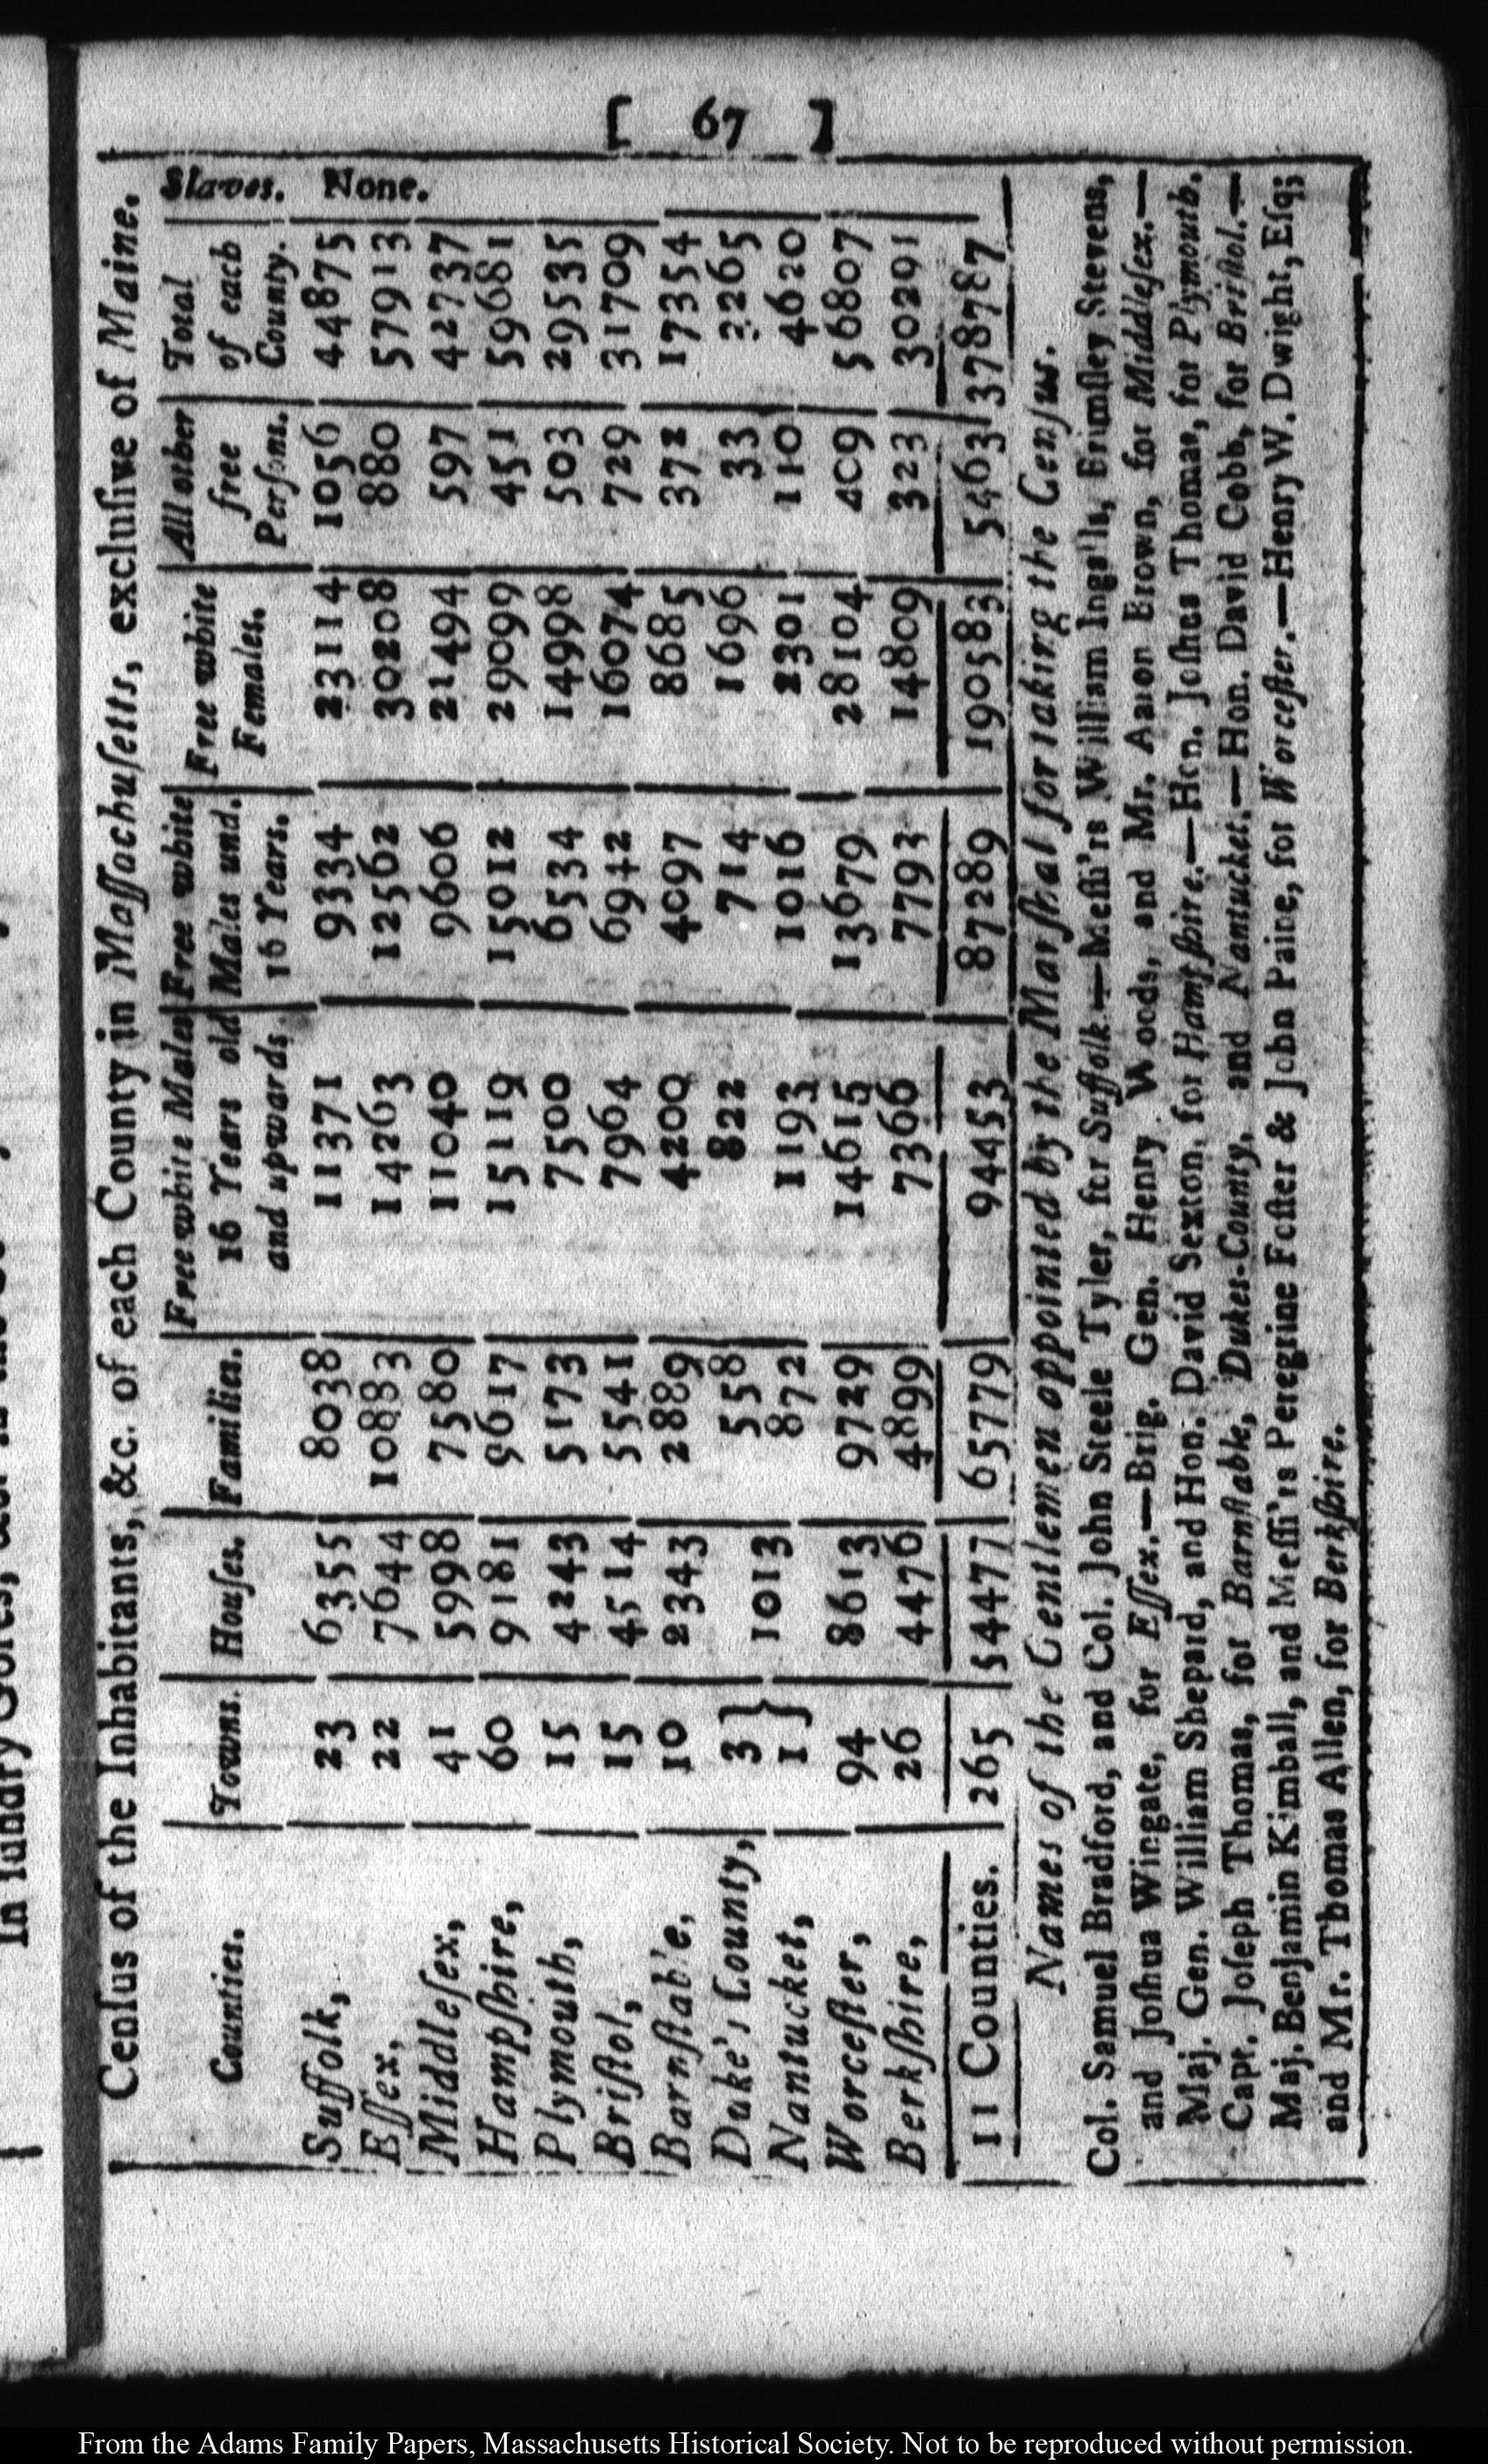 [ 67 ]
Cenſus of the Inhabitants, &c. of each County in Maſſachuſetts, excluſive of Maine.
Counties. Towns. Houſes. Families. Free white Males 16 Years old and upwards. Free white Males und. 16 Years. Free white Females. All other free Perſons. Total of each County. Slaves.
Suffolk, 23 6355 8038 11371 9334 23114 1056 44875 None.
Eſſex, 22 7644 10883 14263 12562 30208 880 57913
Middleſex, 41 5998 7580 11040 9606 21494 597 42737
Hampſhire, 60 9181 9617 15119 15012 29099 451 59681
Plymouth, 15 4243 5173 7500 6534 14998 503 29535
Briſtol, 15 4514 5541 7964 6942 16074 729 31709
Barnſtable, 10 2343 2889 4200 4097 8685 372 17354
Duke's County, 3 } 558 822 714 1696 33 3265
1013
Nantucket, 1 } 872 1193 1016 2301 110 4620
Worceſter, 94 8613 9729 14615 13679 28104 409 56807
Berkſhire, 26 4476 4899 7366 7793 14809 323 30291
11 Counties. 265 54477 65779 94453 87289 190583 5463 378787
Names of the Gentlemen appointed by the Marſhal for taking the Cenſus.
Col. Samuel Bradford, and Col. John Steele Tyler, for Suffolk.—Meſſ'rs William Ingalls, Brimſley Stevens,
and Joſhua Wingate, for Eſſex.—Brig. Gen. Henry Woods, and Mr. Aaron Brown, for Middleſex.—
Maj. Gen. William Shepard, and Hon. David Sexton, for Hampſhire.—Hon. Joſhea Thomas, for Plymouth.
Capt. Joſeph Thomas, for Barnſtable, Dukes-County, and Nantucket.—Hon. David Cobb, for Briſtol.—
Maj. Benjamin Kimball, and Meſſ'rs Peregrine Foſter & John Paice, for Worceſter.—Henry W. Dwight, Eſq;
and Mr. Thomas Allen, for Berkſhire.
From the Adams Family Papers, Massachusetts Historical Society. Not to be reproduced without permission.